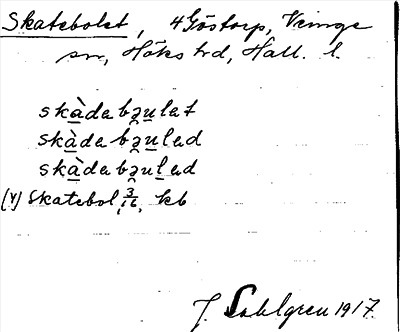 Skatebolet, 4 Göstorp, Veinge
sn, Höks hd, Hall. l.
skàdabəu̯lat
skàdabəu̯lad
skàdabəu̯lad
(Y) Skatebol, 3/16, kb
J. Sahlgren 1917.